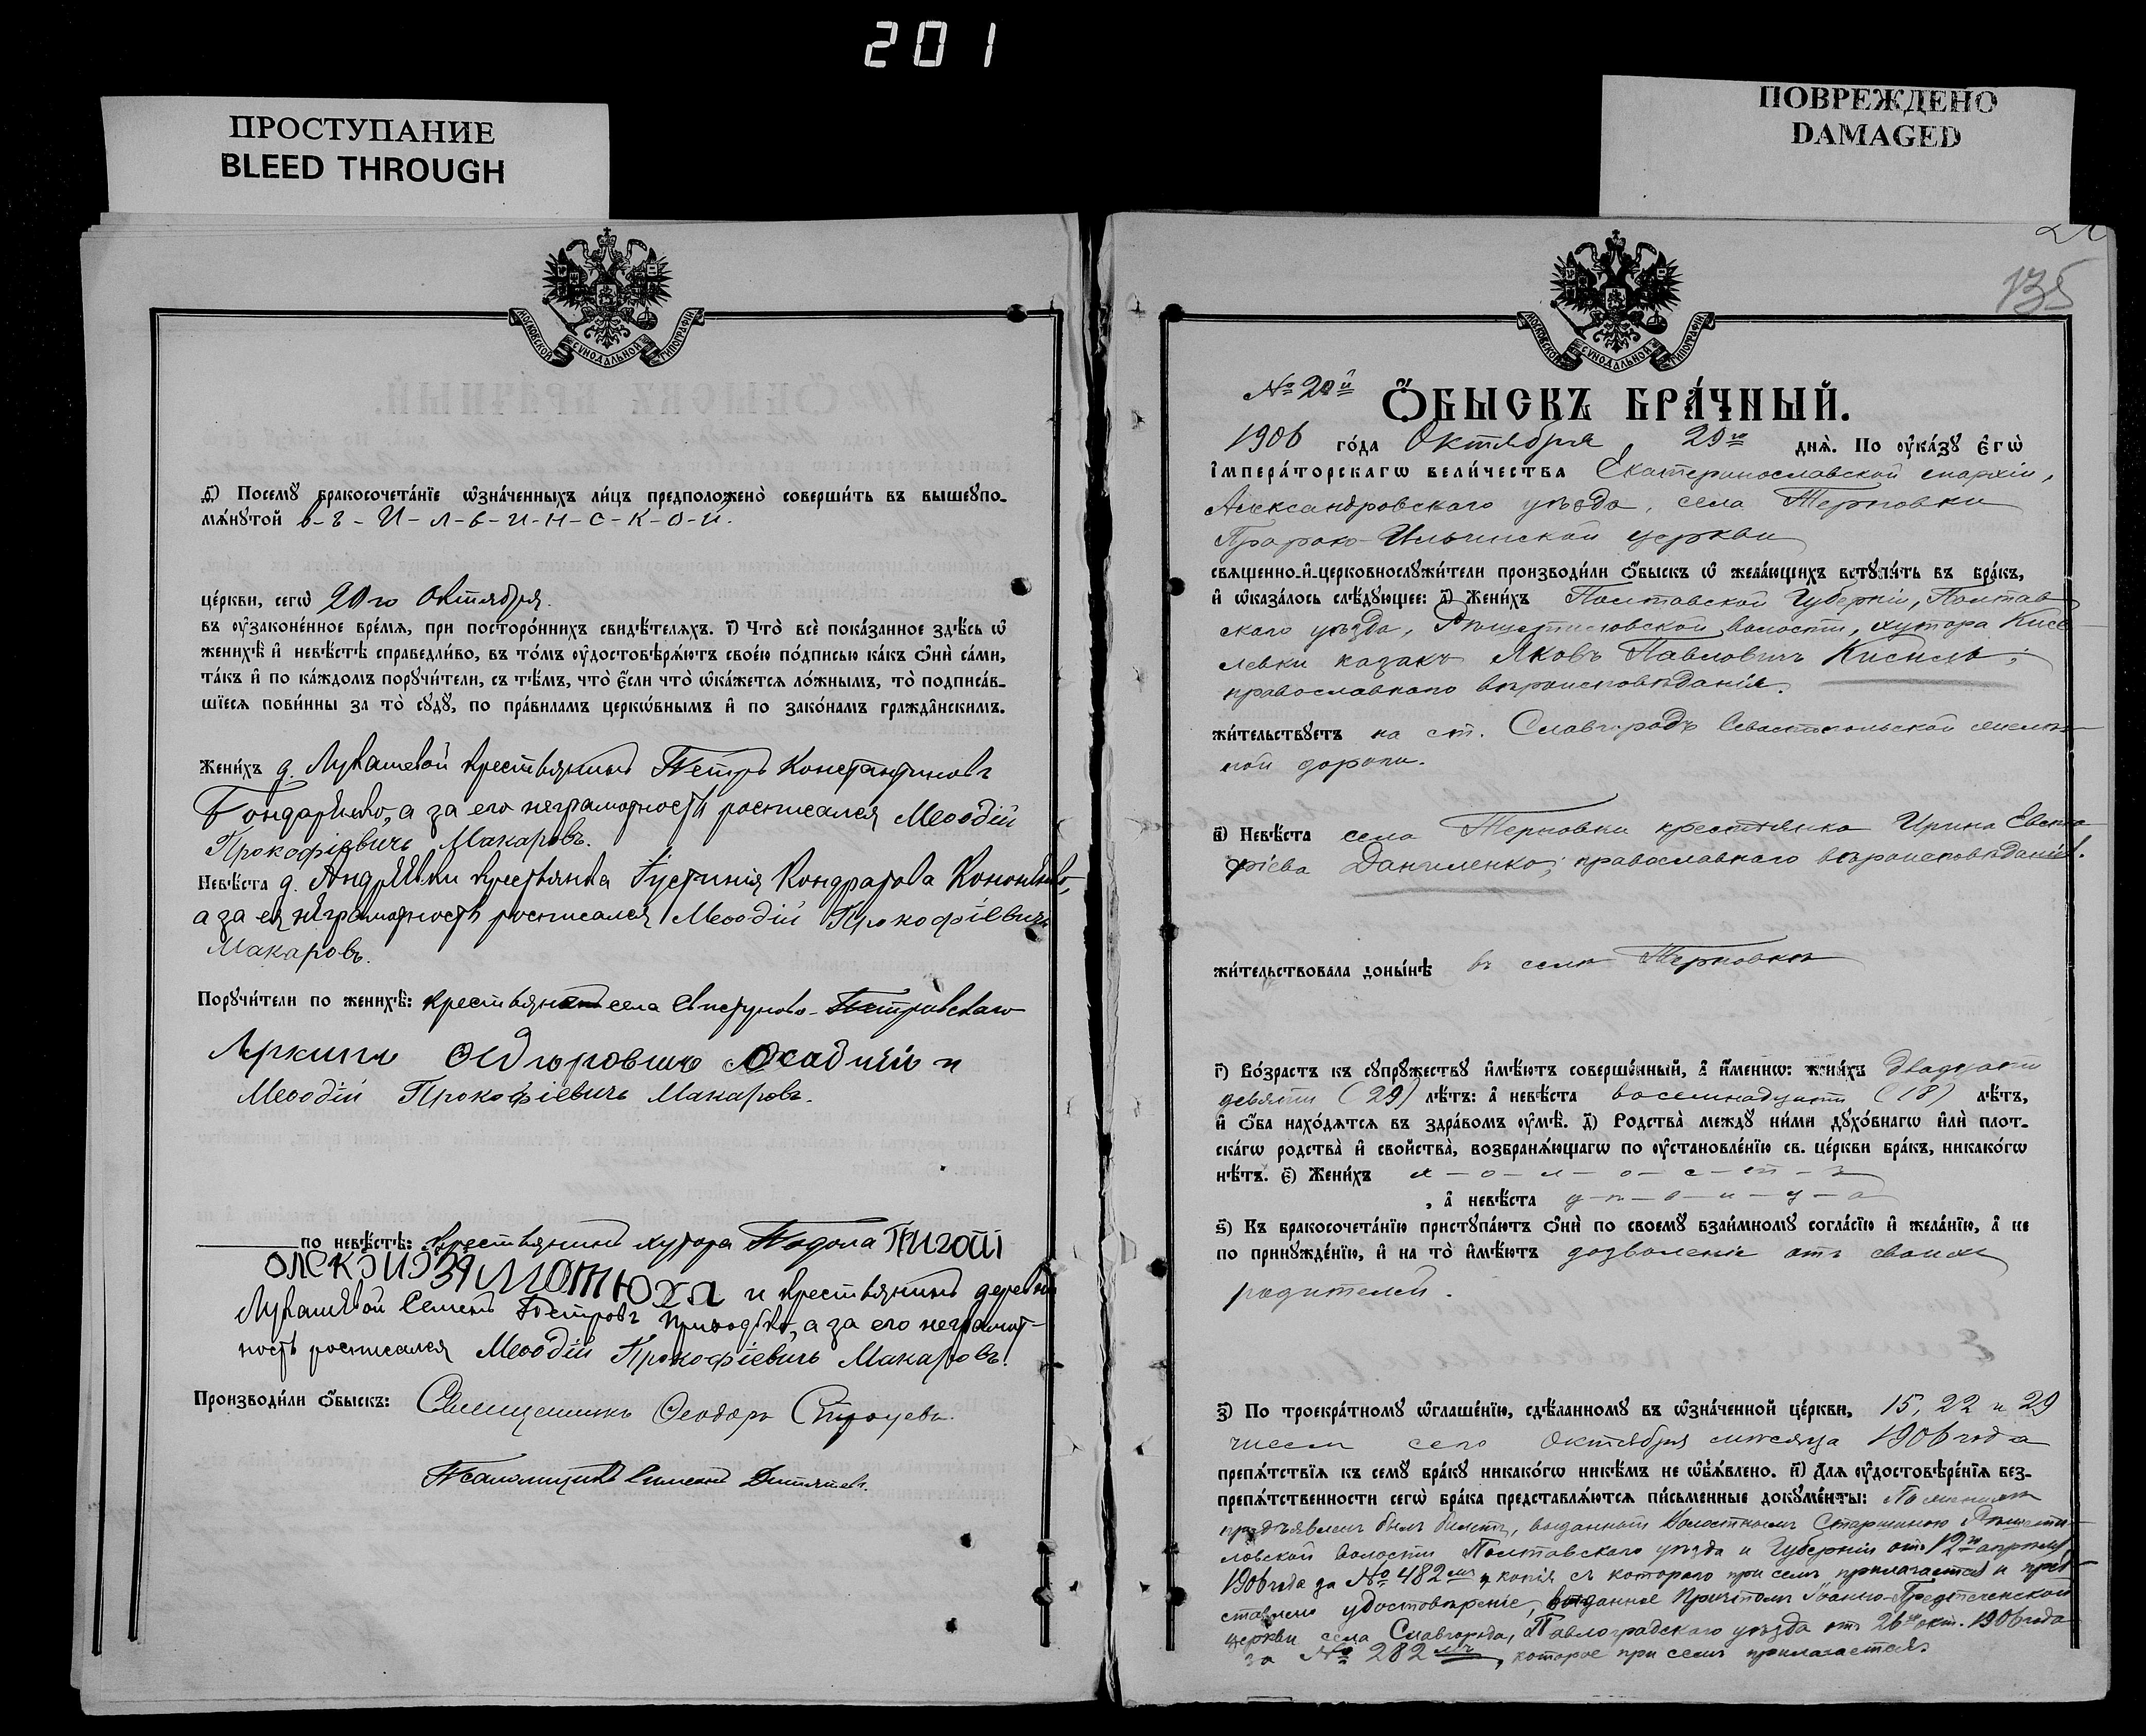 201
ПРОСТУПАНИЕ
BLEED THROUGH
ПОВРЕЖДЕНО
DAMAGED
МОСКОВСКОЙ СѴНОДАЛЬНОЙ ТИПОГРАФІИ
д҃) Посемꙋ бракосочета́нїе ѡ҆зна́ченныхъ ли́цъ предположено̀ соверши́ть въ вышеупо-
мѧ́нꙋтой в-ъ-И-л-ь-и-н-с-к-о-й.
це́ркви, сегѡ̀ 20го Октября.
въ ᲂу҆законе́нное вре́мѧ, при посторо́ннихъ свидѣ́телѧхъ. і҃) Что̀ всѐ пока́занное здѣ́сь ѡ҆
женихѣ̀ и҆ невѣ́стѣ справедли́во, въ то́мъ ᲂу҆достовѣрѧ́ютъ свое́ю по́дписью ка́къ ѻ҆нѝ са́ми,
та́къ и҆ по ка́ждомъ порꙋчи́тели, съ тѣ́мъ, что̀ є҆́сли что̀ ѡ҆ка́жетсѧ ло́жнымъ, то̀ подписа́в-
шїесѧ пови́нны за то̀ сꙋдꙋ̀, по пра́виламъ церкѡ́внымъ и҆ по зако́намъ гражда̂нскимъ.
Жени́хъ д. Лукашевой крестьянинъ Петръ Константиновъ
Бондаренко, а за его неграмотность росписался Меѳодій
Прокофіевичъ Макаровъ.
Невѣ́ста д. крестьянка Іустинія Кондратова Кононенко,
а за ея неграмотность росписался Меѳодій Прокофіевичъ
Макаровъ.
Порꙋчи́тели по женихѣ̀: крестьяне села Свистуново-Петровскаго
Ѳедоровичъ Осадчій и
Меѳодій Прокофіевичъ Макаровъ.
по невѣ́стѣ: крестьянинъ хутора Подола
МАТЮХА и крестьянинъ деревни
Лукашевой Семенъ Петровъ а за его неграмот-
ность росписался Меѳодій Прокофіевичъ Макаровъ.
Производи́ли ѻ҆́быскъ: Священникъ Ѳеодоръ
Псаломщикъ Симеонъ
135
МОСКОВСКОЙ СѴНОДАЛЬНОЙ ТИПОГРАФІИ
№ 20й
Ѻ҆́БЫСКЪ БРА́ЧНЫЙ.
1906 го́да Октября 29го днѧ̀. По ᲂу҆ка́зꙋ Є҆гѡ̀
І҆мпера́торскагѡ вели́чества Екатеринославской епархіи,
Александровскаго уѣзда, села Терновки
Пророко-Ильинской церкви
свѧщенно-и҆-церковнослꙋжи́тели производи́ли ѻ҆́быскъ ѡ҆ жела́ющихъ встꙋпи́ть въ бра́къ,
и҆ ѡ҆каза́лось слѣ́дꙋющее: а҃) Жени́хъ Полтавской Губерніи, Полтав
скаго уѣзда, Рѣшетиловской волости, хутора Кисе
левки казакъ Яковъ Павловичъ Кисиль;
православнаго вѣроисповѣданія.
жи́тельствꙋетъ на ст. Славгородъ Севастопольской желѣз
ной дороги.
в҃) Невѣ́ста села Терновки крестьянка Ирина Евста
фіева Даниленко; православнаго вѣроисповѣданія.
жи́тельствовала доны́нѣ въ селѣ Терновкѣ
г҃) Во́зрастъ къ сꙋпрꙋ́жествꙋ и҆мѣ́ютъ соверше́нный, а҆ и҆́меннѡ: жени́хъ двадцати
девяти (29) лѣ́тъ: а҆ невѣ́ста восемнадцати (18) лѣ́тъ,
и҆ ѻ҆́ба нахо́дѧтсѧ въ здра́вомъ ᲂу҆мѣ̀. д҃) Родства̀ междꙋ̀ ни́ми дꙋхо́внагѡ и҆лѝ плот-
ска́гѡ родства̀ и҆ свойства̀, возбранѧ́ющагѡ по ᲂу҆становле́нїю св. це́ркви бра́къ, никако́гѡ
нѣ́тъ. є҃) Жени́хъ х-о-л-о-с-т-ъ
, а҆ невѣ́ста д-ѣ-в-и-ц-а
ѕ҃) Къ бракосочета́нїю пристꙋпа́ютъ ѻ҆нѝ по своемꙋ̀ взаи́мномꙋ согла́сїю и҆ жела́нїю, а҆ не
по принꙋжде́нїю, и҆ на то̀ и҆мѣ́ютъ дозволеніе отъ своихъ
родителей.
з҃) По троекра́тномꙋ ѡ҆глаше́нїю, сдѣ́ланномꙋ въ ѡ҆зна́ченной це́ркви, 15, 22 и 29
чиселъ сего Октября мѣсяца 1906 года
препѧ́тствїѧ къ семꙋ̀ бра́кꙋ никако́гѡ никѣ́мъ не ѡ҆бꙗ́влено. и҃) Длѧ ᲂу҆достовѣре́нїѧ без-
препѧ́тственности сегѡ̀ бра́ка представлѧ́ютсѧ пи́сьменные докꙋме́нты:
предъявленъ былъ билетъ, выданный Волостнымъ Старшиною Рѣшети-
ловской волости Полтавскаго уѣзда и Губерніи отъ 12го апрѣля
1906 года за № 482мъ, копія съ котораго при семъ прилагается и пред
ставлено удостовѣреніе, выданное Причтомъ Іоанно-Предтеченской
церкви села Славгорода, Павлоградскаго уѣзда отъ 26го окт. 1906 года
за № 282мъ, которое при семъ прилагается.